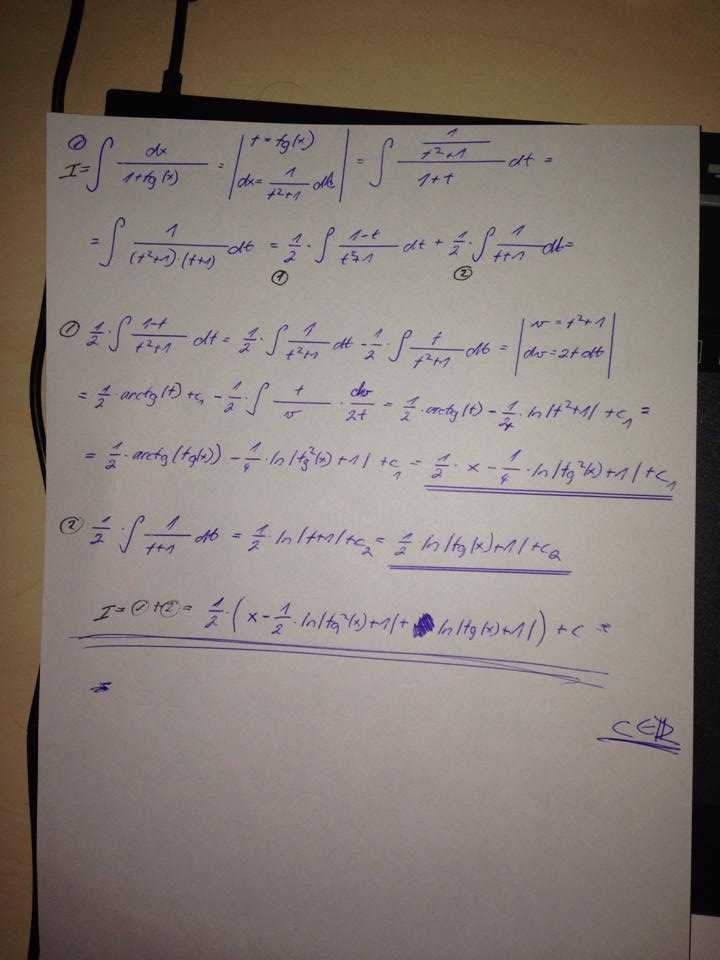 ① I = ∫ dx/(1+tg(x)) = | t = tg(x) dx = 1/(t²+1) dt | = ∫ (1/(t²+1))/(1+t) dt =
= ∫ 1/((t²+1)·(t+1)) dt = 1/2 · ∫ (1-t)/(t²+1) dt + 1/2 · ∫ 1/(t+1) dt =
① ②
① 1/2 · ∫ (1-t)/(t²+1) dt = 1/2 · ∫ 1/(t²+1) dt - 1/2 · ∫ t/(t²+1) dt = | v = t²+1 dv = 2t dt |
= 1/2 · arctg(t) + c₁ - 1/2 · ∫ t/v · dv/2t = 1/2 · arctg(t) - 1/4 · ln|t²+1| + c₁ =
= 1/2 · arctg(tg(x)) - 1/4 · ln|tg²(x)+1| + c₁ = 1/2 · x - 1/4 · ln|tg²(x)+1| + c₁
② 1/2 · ∫ 1/(t+1) dt = 1/2 · ln|t+1| + c₂ = 1/2 · ln|tg(x)+1| + c₂
I = ① + ② = 1/2 · (x - 1/2 · ln|tg²(x)+1| + ln|tg(x)+1|) + c =
=
C ∈ ℝ